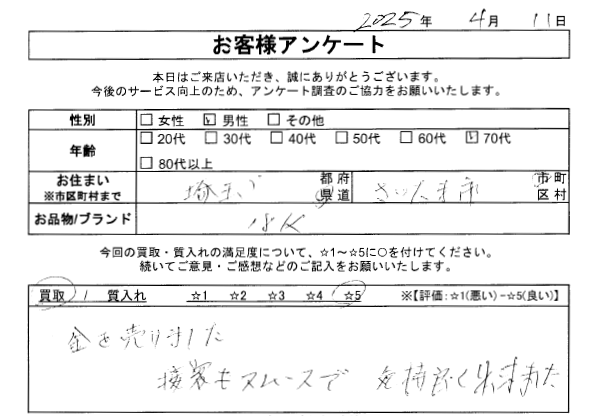 2025年 4月 11日
お客様アンケート
本日はご来店いただき、誠にありがとうございます。
今後のサービス向上のため、アンケート調査のご協力をお願いいたします。
性別 □女性 ☑男性 □その他
年齢 □20代 □30代 □40代 □50代 □60代 ☑70代
□80代以上
お住まい 埼玉 都府県道 さいたま市 市町区村
※市区町村まで
お品物/ブランド
今回の買取・質入れの満足度について、☆1～☆5に○を付けてください。
続いてご意見・ご感想などのご記入をお願いいたします。
買取 / 質入れ ☆1 ☆2 ☆3 ☆4 ☆5 ※【評価:☆1(悪い)-☆5(良い)】
金を売りました
接客もスムースで 気持よく出来ました